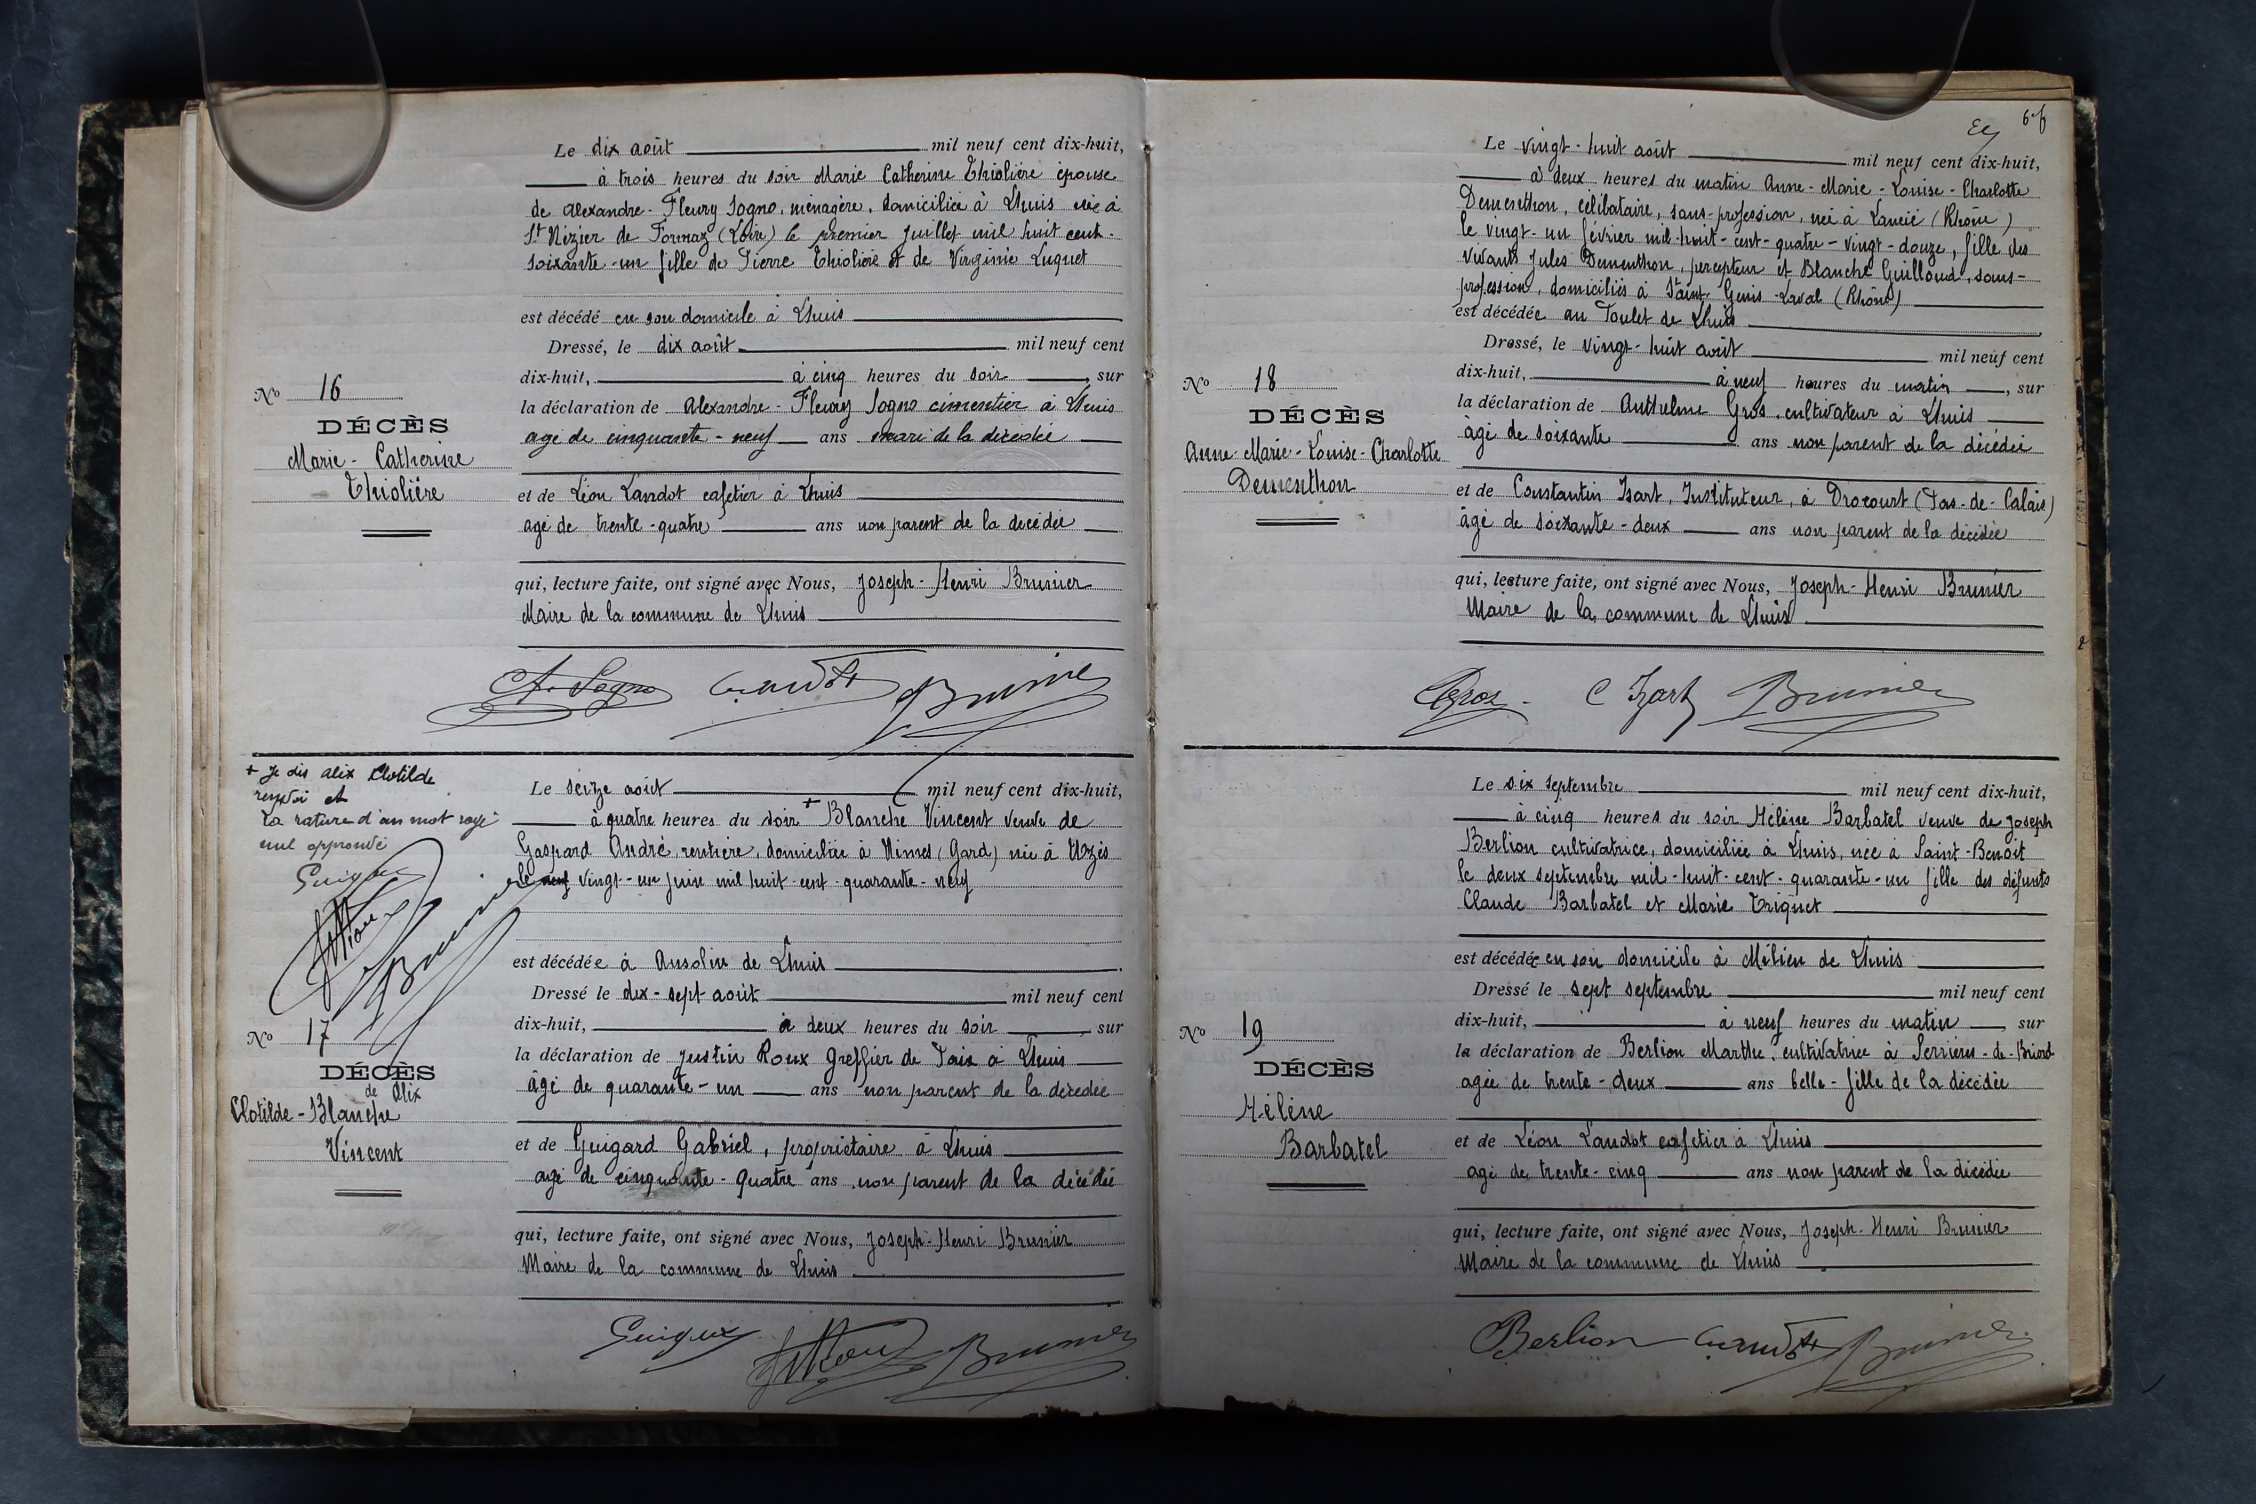 Le dix août mil neuf cent dix-huit,
à trois heures du soir Marie Catherine Thiolière épouse
de Alexandre-Fleury Sogno, ménagère, domiciliée à Lhuis née à
St Nizier de Fornaz (Loire) le premier juillet mil huit cent-
soixante-un fille de Pierre Thiolière et de Virginie Luquet
est décédé en son domicile à Lhuis
Dressé, le dix août mil neuf cent
dix-huit, à cinq heures du soir, sur
la déclaration de Alexandre-Fleury Sogno cimentier à Lhuis
agé de cinquante-neuf ans mari de la décédée
et de Léon Landot cafetier à Lhuis
agé de trente-quatre ans non parent de la décédée
qui, lecture faite, ont signé avec Nous, Joseph-Henri Brunier
Maire de la commune de Lhuis
No 16
DÉCÈS
Marie-Catherine
Thiolière
A. Sogno Landot Brunier
+ Je dis Alix Clotilde
renvoi et
la rature d'un mot rayé
nul approuvé
Brunier
No 17
DÉCÈS
de Alix
Clotilde-Blanche
Vincent
Le seize août mil neuf cent dix-huit,
à quatre heures du soir + Blanche Vincent veuve de
Gaspard André rentière, domiciliée à Nîmes (Gard) née à Uzès
le neuf vingt-un juin mil huit-cent-quarante-neuf
est décédée à Ansolin de Lhuis
Dressé le dix-sept août mil neuf cent
dix-huit, à deux heures du soir, sur
la déclaration de Justin Roux Greffier de Paix à Lhuis
âgé de quarante-un ans non parent de la décédée
et de Guigard Gabriel, propriétaire à Lhuis
agé de cinquante-quatre ans non parent de la décédée
qui, lecture faite, ont signé avec Nous, Joseph-Henri Brunier
Maire de la commune de Lhuis
Brunier
Le vingt-huit août mil neuf cent dix-huit,
à deux heures du matin Anne-Marie-Louise-Charlotte
Dementhon, célibataire, sans-profession, née à Lancié (Rhône)
le vingt-un février mil-huit-cent-quatre-vingt-douze, fille des
vivants Jules Dementhon, percepteur et Blanche Guilloud, sans-
profession, domiciliés à Saint Genis-Laval (Rhône)
est décédée au Poulet de Lhuis
Dressé, le vingt-huit août mil neuf cent
dix-huit, à neuf heures du matin, sur
la déclaration de Anthelme Gros, cultivateur à Lhuis
âgé de soixante ans non parent de la décédée
et de Constantin Izart, Instituteur, à Drocourt (Pas-de-Calais)
âgé de soixante-deux ans non parent de la décédée
qui, lecture faite, ont signé avec Nous, Joseph-Henri Brunier
Maire de la commune de Lhuis
No 18
DÉCÈS
Anne-Marie-Louise-Charlotte
Dementhon
Gros C Izart Brunier
Le six septembre mil neuf cent dix-huit,
à cinq heures du soir Hélène Barbatel veuve de Joseph
Berlion cultivatrice, domiciliée à Lhuis, née à Saint-Benoit
le deux septembre mil-huit-cent-quarante-un fille des défunts
Claude Barbatel et Marie Triquet
est décédée en son domicile à Mélieu de Lhuis
Dressé le sept septembre mil neuf cent
dix-huit, à neuf heures du matin, sur
la déclaration de Berlion Marthe, cultivatrice à Serrières-de-Briord
agée de trente-deux ans belle-fille de la décédée
et de Léon Landot cafetier à Lhuis
agé de trente-cinq ans non parent de la décédée
qui, lecture faite, ont signé avec Nous, Joseph-Henri Brunier
Maire de la commune de Lhuis
No 19
DÉCÈS
Hélène
Barbatel
Berlion Landot Brunier